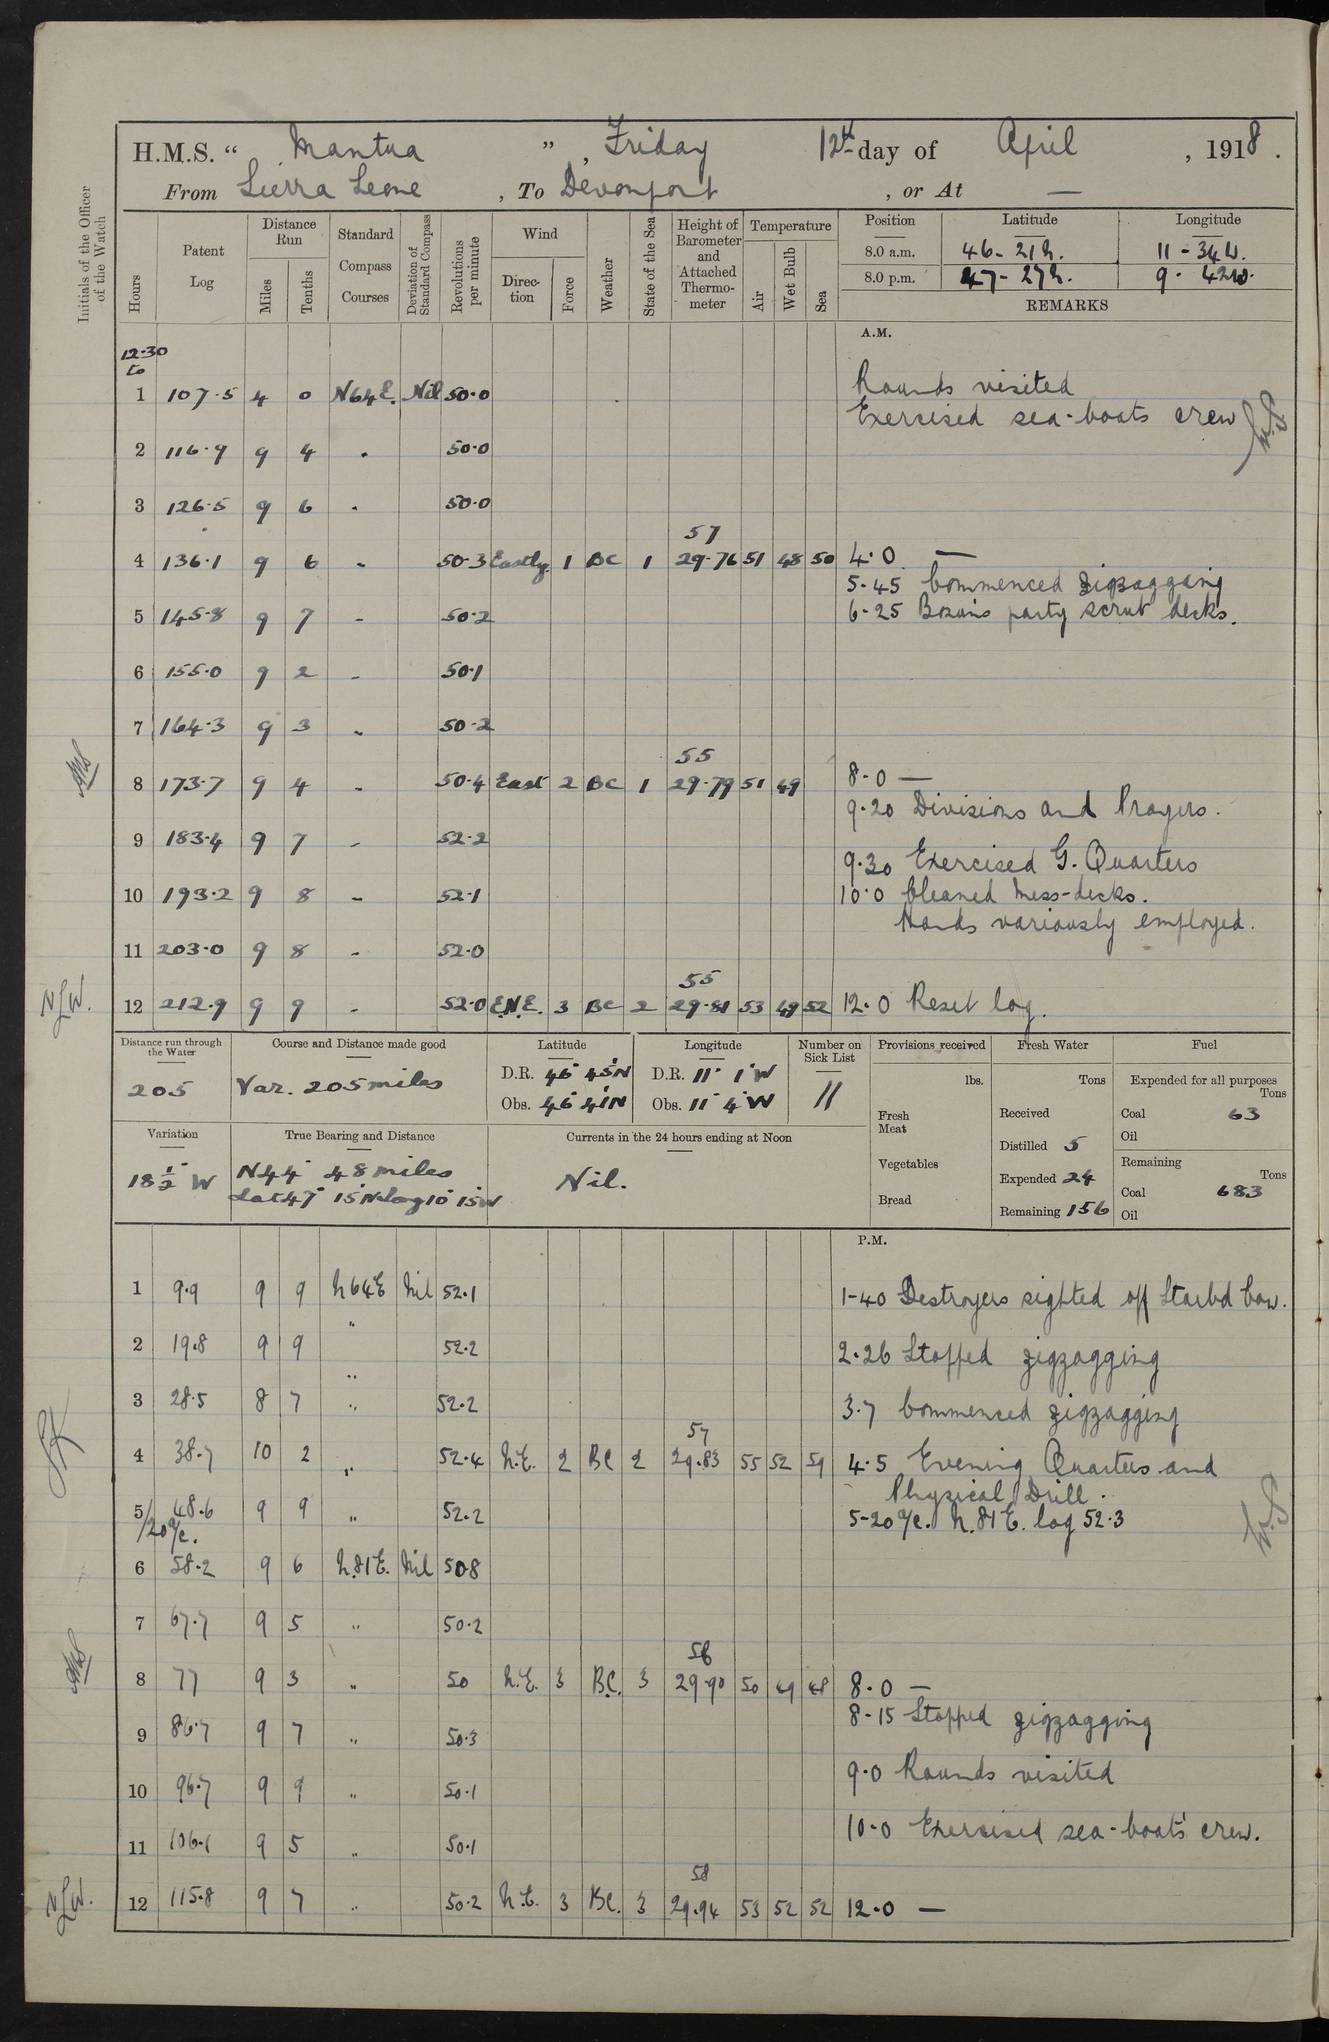 H.M.S. “ Mantua ” , Friday 12th day of April , 1918 .
From Sierra Leone , To Devonport , or At —
Initials of the Officer of the Watch
Hours
Patent Log
Distance Run
Miles
Tenths
Standard Compass Courses
Deviation of Standard Compass
Revolutions per minute
Wind
Direction
Force
Weather
State of the Sea
Height of Barometer and Attached Thermometer
Temperature
Air
Wet Bulb
Sea
Position Latitude Longitude
8.0 a.m. 46-21 N. 11-34 W.
8.0 p.m. 47-27 N. 9. 42 W.
REMARKS
A.M.
12-30 to
1 107.5 4 0 N64E. Nil 50.0 Rounds visited
Exercised sea-boats crew
2 116.9 9 4 " 50.0
3 126.5 9 6 " 50.0
57
4 136.1 9 6 " 50.3 Eastly. 1 BC 1 29.76 51 48 50 4.0 —
5-45 Commenced zigzagging
6-25 Bosuns party scrub decks.
5 145.8 9 7 " 50.2
6 155.0 9 2 " 50.1
7 164.3 9 3 " 50.2
55
8 173.7 9 4 " 50.4 East 2 BC 1 29.79 51 49 8.0 —
9.20 Divisions and Prayers.
9 183.4 9 7 " 52.2
9.30 Exercised G. Quarters
10 193.2 9 8 " 52.1 10.0 Cleaned Mess-decks.
Hands variously employed.
11 203.0 9 8 " 52.0
55
N.L.W. 12 212.9 9 9 " 52.0 E.N.E. 3 BC 2 29.81 53 49 52 12.0 Reset log.
Distance run through the Water
205
Course and Distance made good
Var. 205 miles
Latitude
D.R. 46° 45' N
Obs. 46° 41' N
Longitude
D.R. 11° 1' W
Obs. 11° 4' W
Number on Sick List
11
Provisions received
lbs.
Fresh Meat
Vegetables
Bread
Fresh Water
Tons
Received
Distilled 5
Expended 24
Remaining 156
Fuel
Expended for all purposes
Tons
Coal 63
Oil
Remaining
Tons
Coal 683
Oil
Variation
18 1/2° W
True Bearing and Distance
N44° 48 miles
Lat 47° 15' N Long 10° 15' W
Currents in the 24 hours ending at Noon
Nil.
P.M.
1 9.9 9 9 N64E Nil 52.1 1-40 Destroyers sighted off Starbd bow.
2 19.8 9 9 " 52.2 2.26 Stopped zigzagging
3 28.5 8 7 " 52.2 3.7 Commenced zigzagging
57
4 38.7 10 2 " 52.4 N.E. 2 BC 2 29.83 55 52 59 4.5 Evening Quarters and
Physical Drill.
5 48.6 9 9 " 52.2 5-20 a/c. N.81E. log 52.3
/20 a/c.
6 58.2 9 6 N.81E. Nil 50.8
7 67.7 9 5 " 50.2
56
8 77 9 3 " 50 N.E. 3 B.C. 3 29.90 50 49 48 8.0 —
8-15 Stopped zigzagging
9 86.7 9 7 " 50.3
9.0 Rounds visited
10 96.7 9 9 " 50.1
10-0 Exercised sea-boats' crew.
11 106.1 9 5 " 50.1
58
N.L.W. 12 115.8 9 7 " 50.2 N.E. 3 BC. 3 29.94 53 52 52 12.0 —